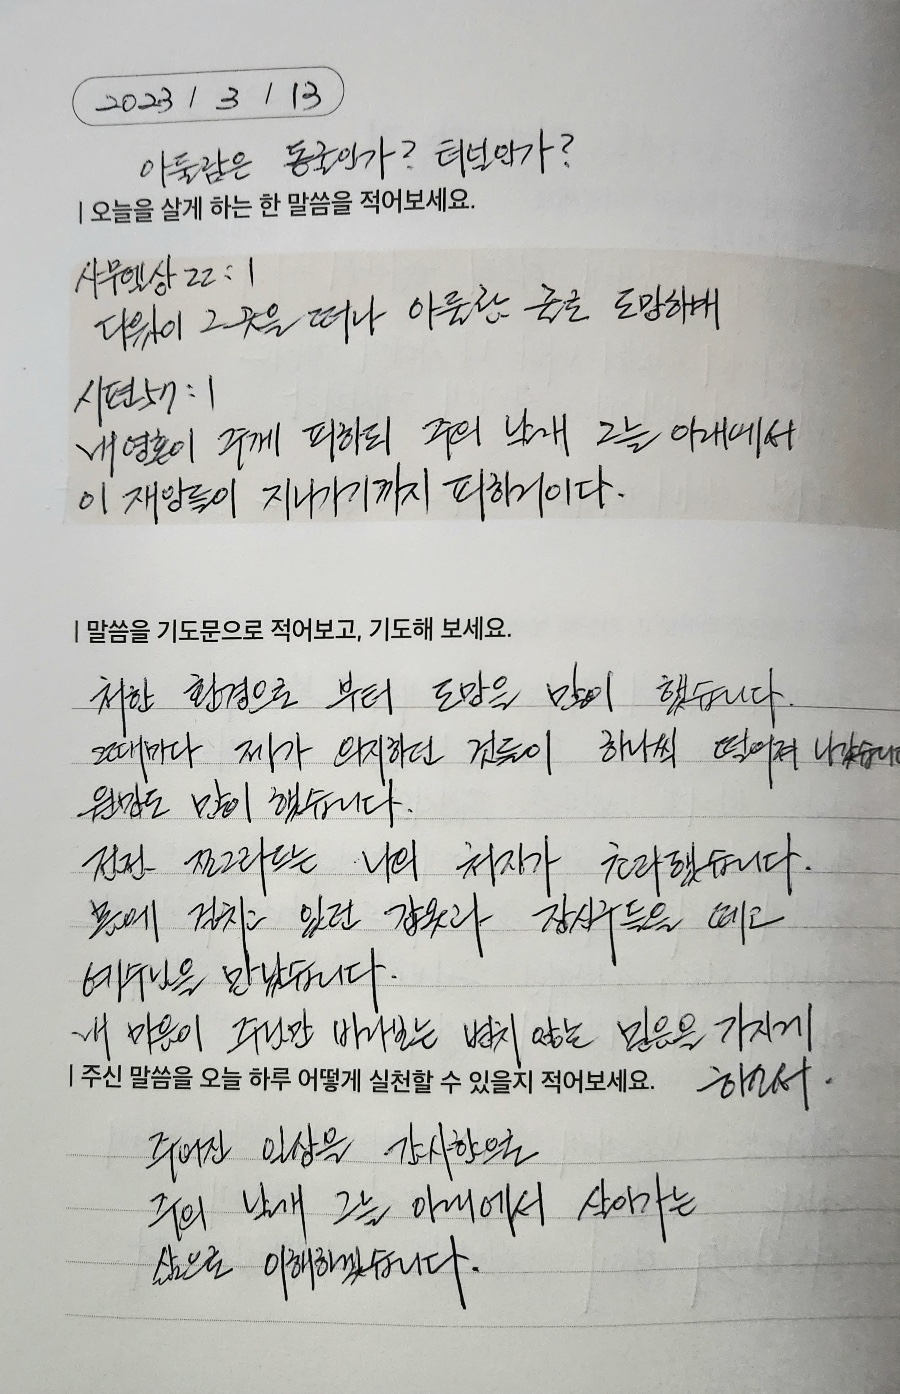 2023 / 3 / 13
아둘람은 동굴인가? 터널인가?
| 오늘을 살게 하는 한 말씀을 적어보세요.
사무엘상 22 : 1
다윗이 그곳을 떠나 아둘람 굴로 도망하매
시편 57 : 1
내 영혼이 주께 피하되 주의 날개 그늘 아래에서
이 재앙들이 지나가기까지 피하리이다.
| 말씀을 기도문으로 적어보고, 기도해 보세요.
처한 환경으로 부터 도망을 많이 했습니다.
그때마다 제가 의지하던 것들이 하나씩 떨어져 나갔습니다
원망도 많이 했습니다.
점점 쪼그라드는 나의 처지가 초라했습니다.
몸에 걸치고 있던 갑옷과 장신구들을 떼고
예수님을 만났습니다.
내 마음이 주님만 바라보는 변치 않는 믿음을 가지게
하소서.
| 주신 말씀을 오늘 하루 어떻게 실천할 수 있을지 적어보세요.
주어진 일상을 감사함으로
주의 날개 그늘 아래에서 살아가는
삶으로 이해하겠습니다.